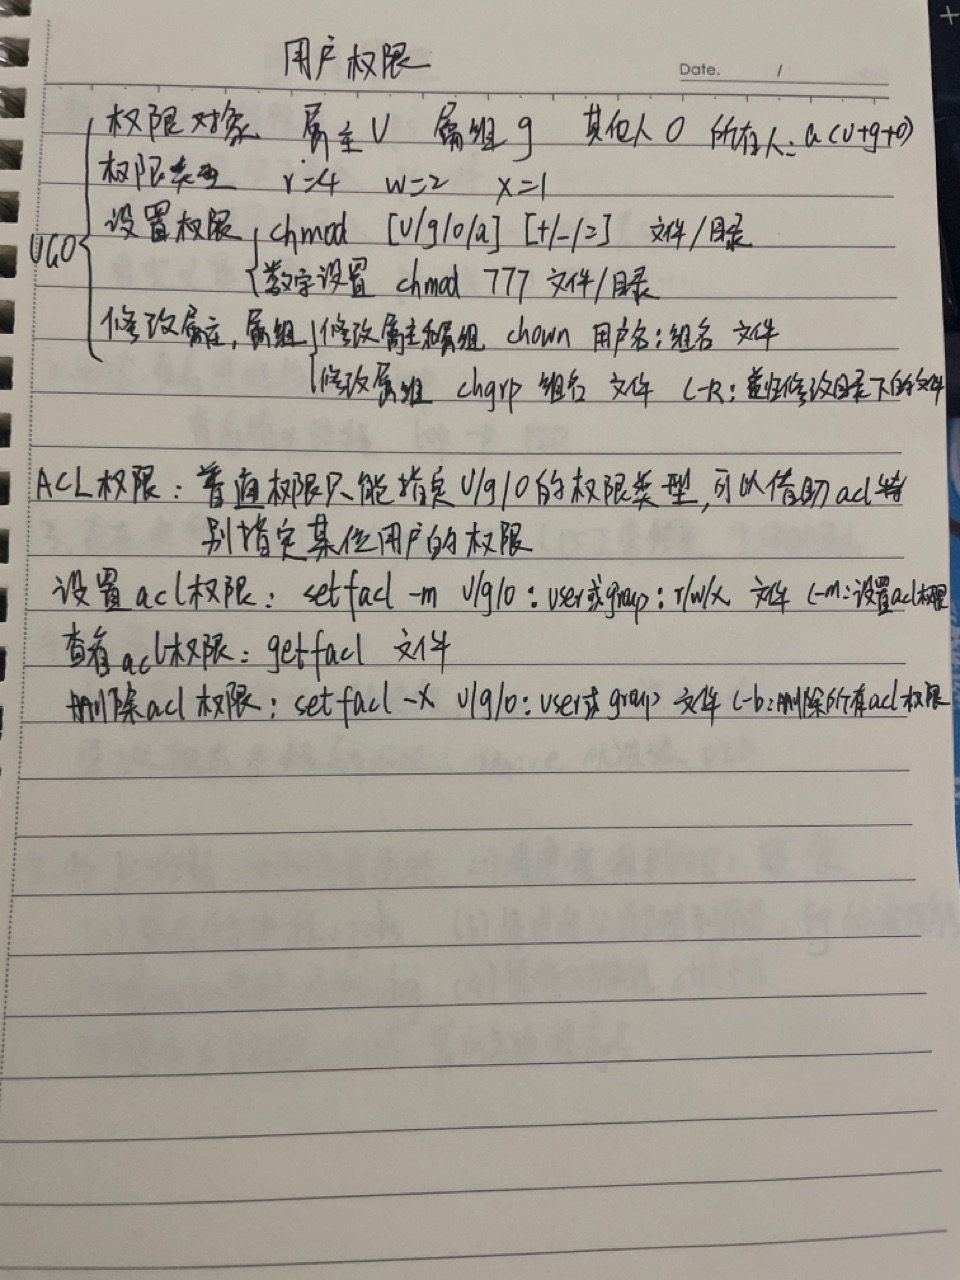 用户权限
Date. /
权限对象 属主 U 属组 g 其他人 O 所有人: a (U+g+o)
权限类型 r=4 w=2 x=1
UGO
设置权限 chmod [U/g/o/a] [+/-/=] 文件/目录
数字设置 chmod 777 文件/目录
修改属主, 属组 修改属主和属组 chown 用户名:组名 文件
修改属组 chgrp 组名 文件 (-R: 递归修改目录下的文件
ACL权限: 普通权限只能指定U/g/o的权限类型,可以借助acl特
别指定某位用户的权限
设置acl权限: setfacl -m U/g/o:user或group:r/w/x 文件 (-m:设置acl权限
查看acl权限: getfacl 文件
删除acl权限: setfacl -x U/g/o:user或group 文件 (-b:删除所有acl权限